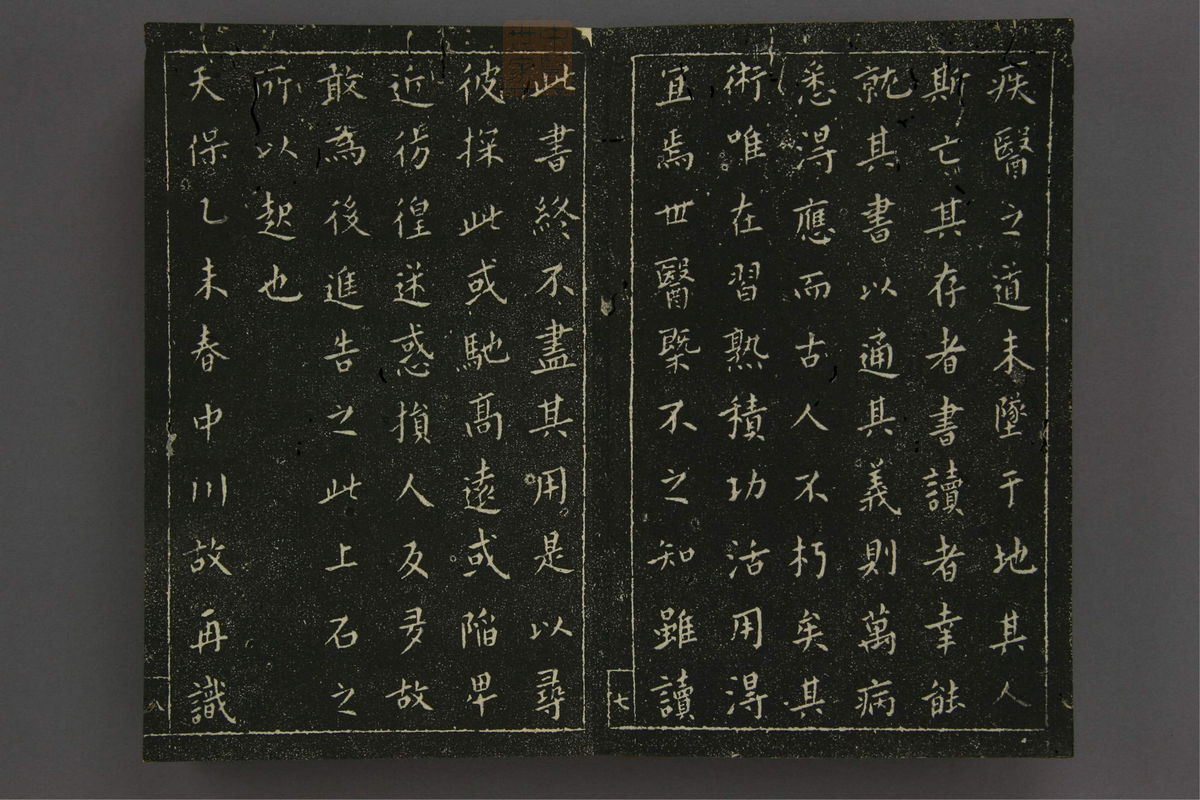 疾醫之道未墜于地其人
斯亡其存者書讀者幸能
就其書以通其義則萬病
悉得應而古人不朽矣其
術唯在習熟積功活用得
宜焉世醫槩不之知雖讀
七
此書終不盡其用是以尋
彼探此或馳高遠或陥卑
近彷徨迷惑損人反多故
敢為後進告之此上石之
所以起也
天保乙未春中川故再識
八